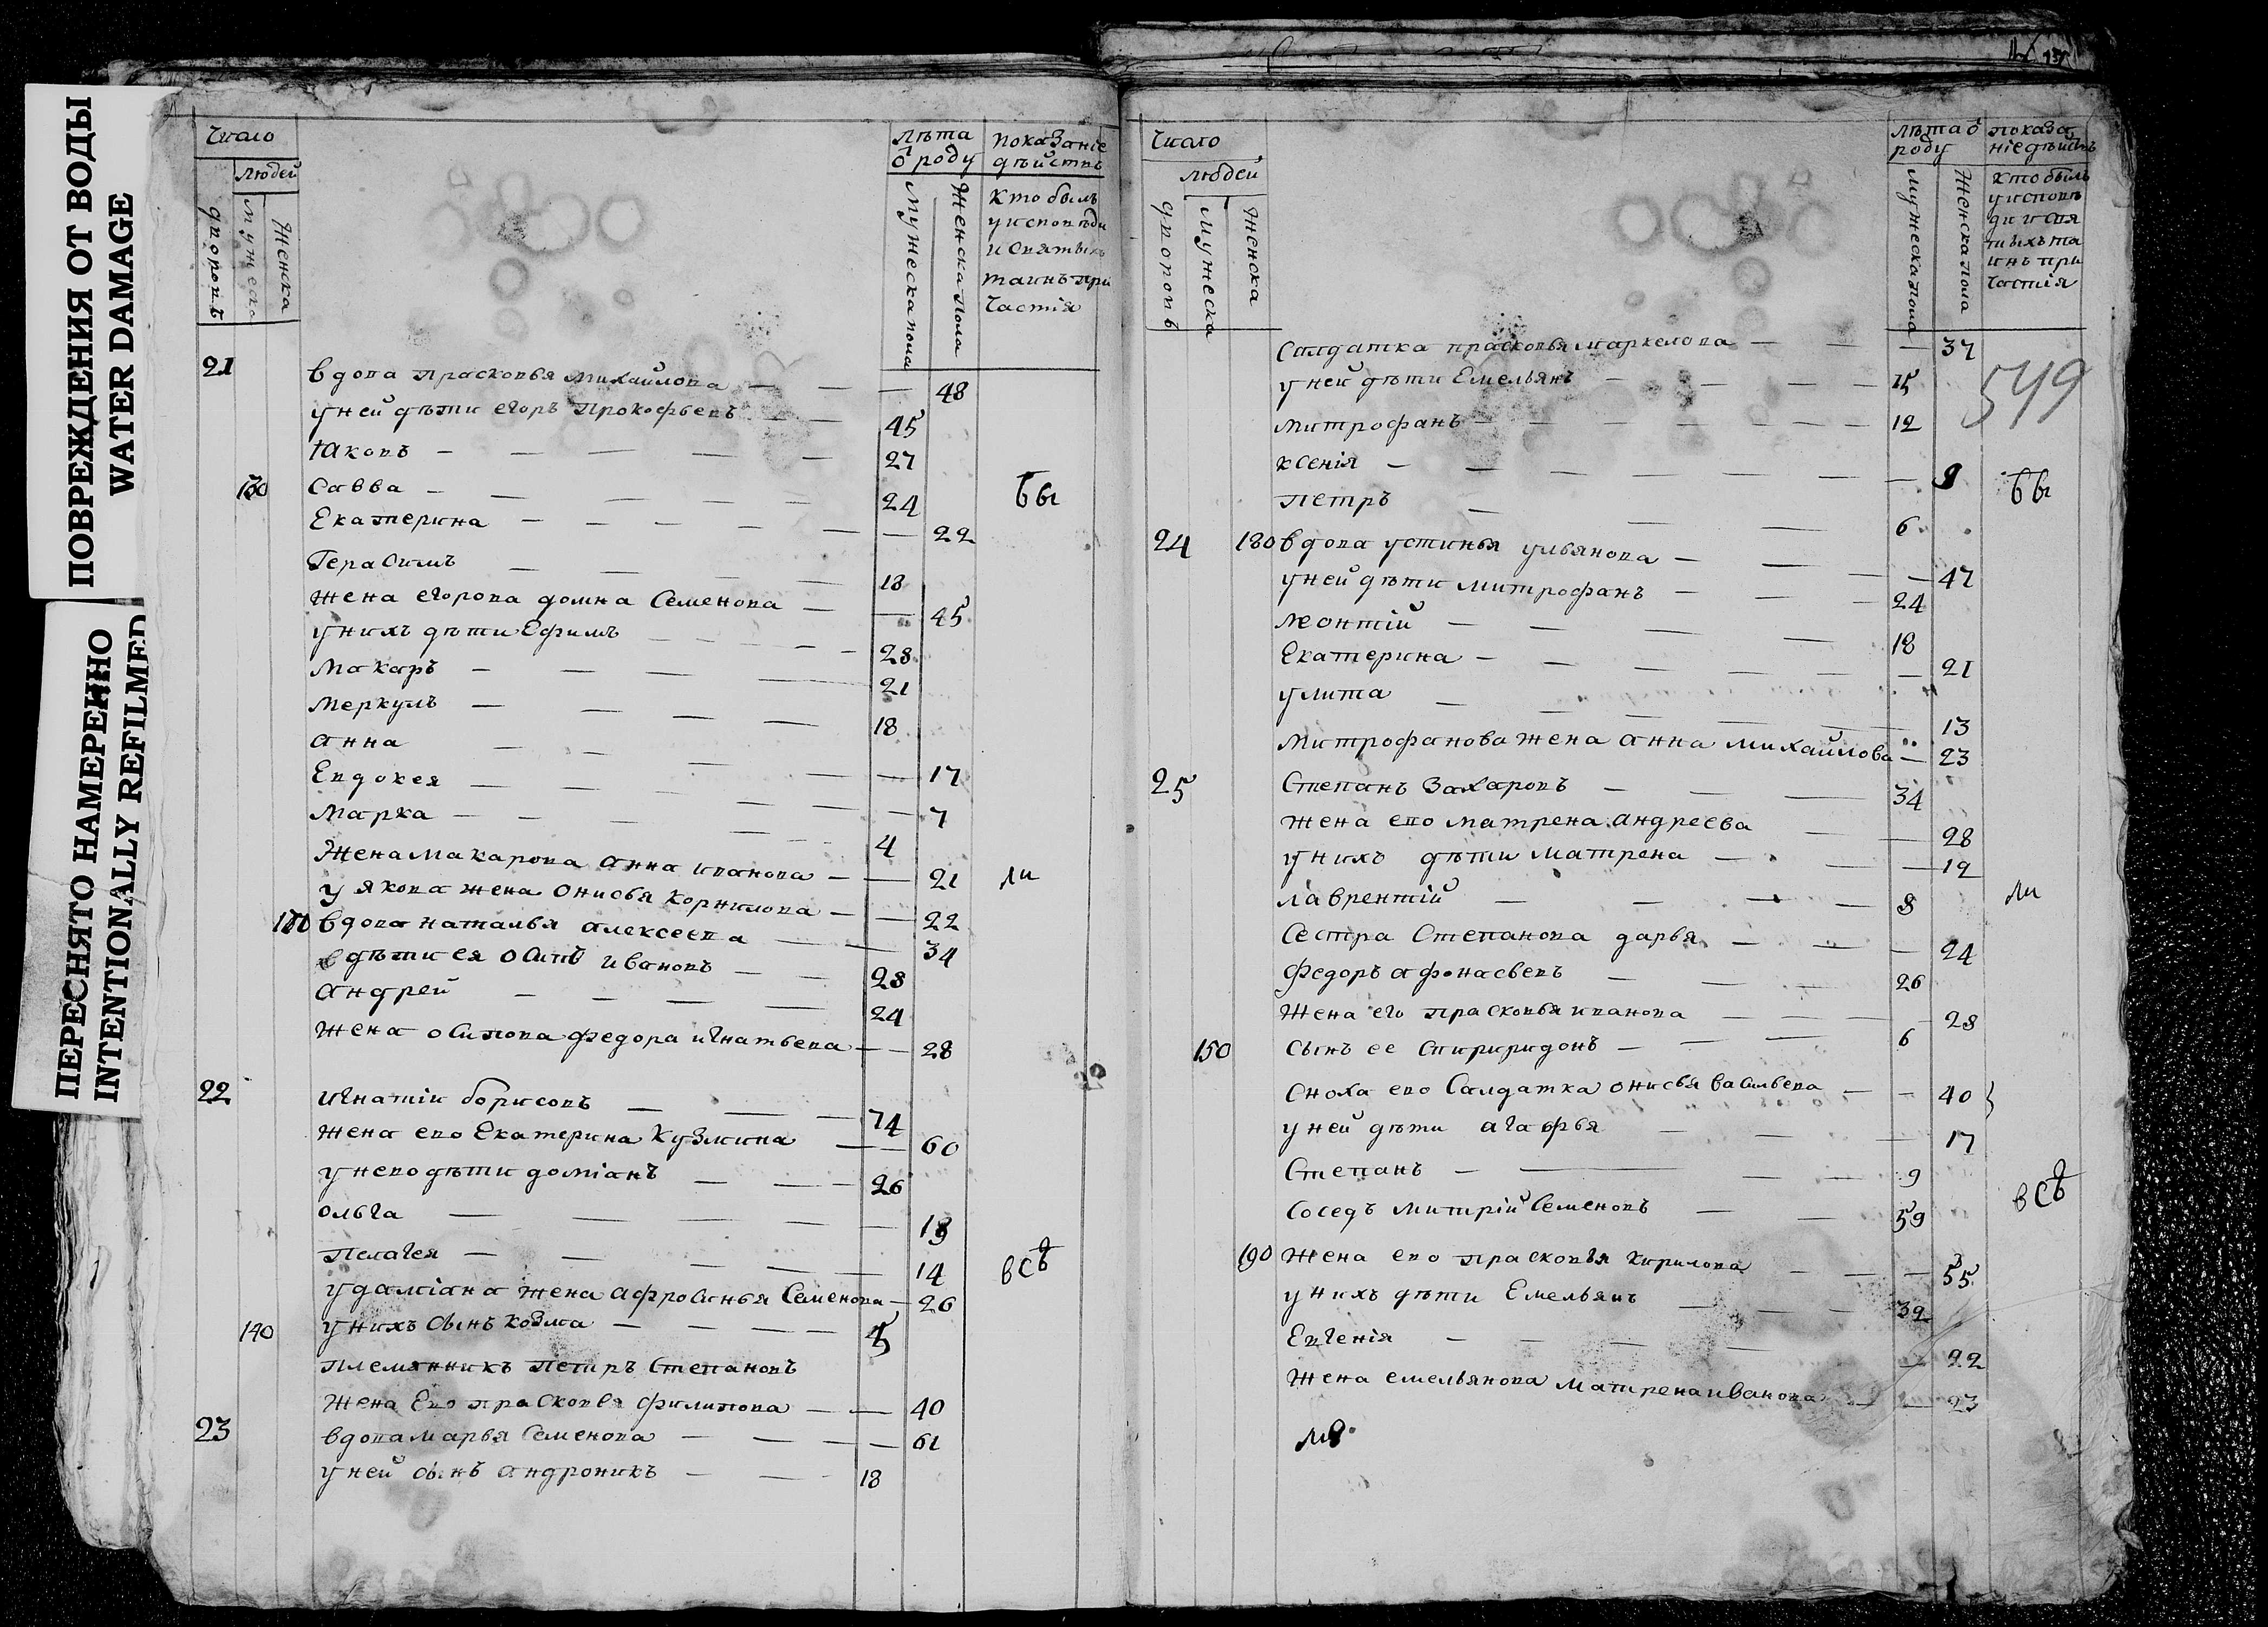 ПОВРЕЖДЕНИЯ ОТ ВОДЫ
WATER DAMAGE
ПЕРЕСНЯТО НАМЕРЕННО
INTENTIONALLY REFILMED
Число
людей
дворовъ
мужеска
женска
лѣта ѿ роду
мужеска пола
женска пола
показаніе дѣйствъ
кто былъ
у исповѣди
и святыхъ
таинъ при
частія
21 вдова прасковья михайлова — — — 48
у ней дѣти егоръ прокофьевъ — — 45
Іаковъ — — — — — 27
130 Савва — — — — — 24
Екатерина — — — — — — 22
Герасимъ — — — — 18
жена егорова домна Семенова — — 45
у нихъ дѣти Ефимъ — — — — 28
Макаръ — — — — 21
Меркулъ — — — — 18
анна — — — — — 17
Евдокея — — — — — — 7
Марка — — — — — 4
Жена макарова анна иванова — — 21
у якова жена онисья корнилова — — 22
180 вдова наталья алексеева — — 34
дѣти ея осипъ ивановъ — — 28
андрей — — — — 24
жена осипова федора игнатьева — — 28
бы
ли
22 игнатіи борисовъ — — — 74
жена ево Екатерина кузмина — — 60
у нево дѣти доміанъ — — — 26
ольга — — — — — — 18
пелагея — — — — — 14
у даміана жена афросинья Семенова — 26
140 у нихъ сынъ козма — — — — 5
племянникъ петръ Степановъ
жена Ево прасковья филипова — — 40
23 вдова марья Семенова — — — — 61
у ней сынъ андроникъ — — — 18
всѣ
Число
людей
дворовъ
мужеска
женска
лѣта ѿ роду
мужеска пола
женска пола
показа
ніе дѣйствъ
кто былъ
у исповѣ
ди и свя
тыхъ та
инъ при
частія
Салдатка прасковья маркелова — — — 37
у ней дѣти Емельянъ — — — — 15
митрофанъ — — — — — — — 12
ксенія — — — — — — 9
петръ — — — 6
549
24 180 вдова устинья ульянова — — — — 47
у ней дѣти митрофанъ — — — 24
леонтій — — — — 18
Екатерина — — — — — 21
улита — — — — — 13
митрофанова жена анна михайлова — 23
25 Степанъ Захаровъ — — — 34
жена ево матрена андреева — — 28
у нихъ дѣти матрена — — — 12
лаврентій — — — — 8
Сестра Степанова дарья — — — — 24
федоръ афонасьевъ — — — 26
жена его прасковья иванова — — — 28
150 сынъ ее спиридонъ — — — 6
Сноха ево Салдатка онисья васильева — — 40
у ней дѣти агафья — — — 17
Степанъ — — — — 9
соседъ митрій Семеновъ — — 59
190 жена ево прасковья кирилова — — — 55
у нихъ дѣти Емельянъ — — 32
Евгенія — — — — — 22
жена емельянова матрена иванова — — 23
бы
ли
всѣ